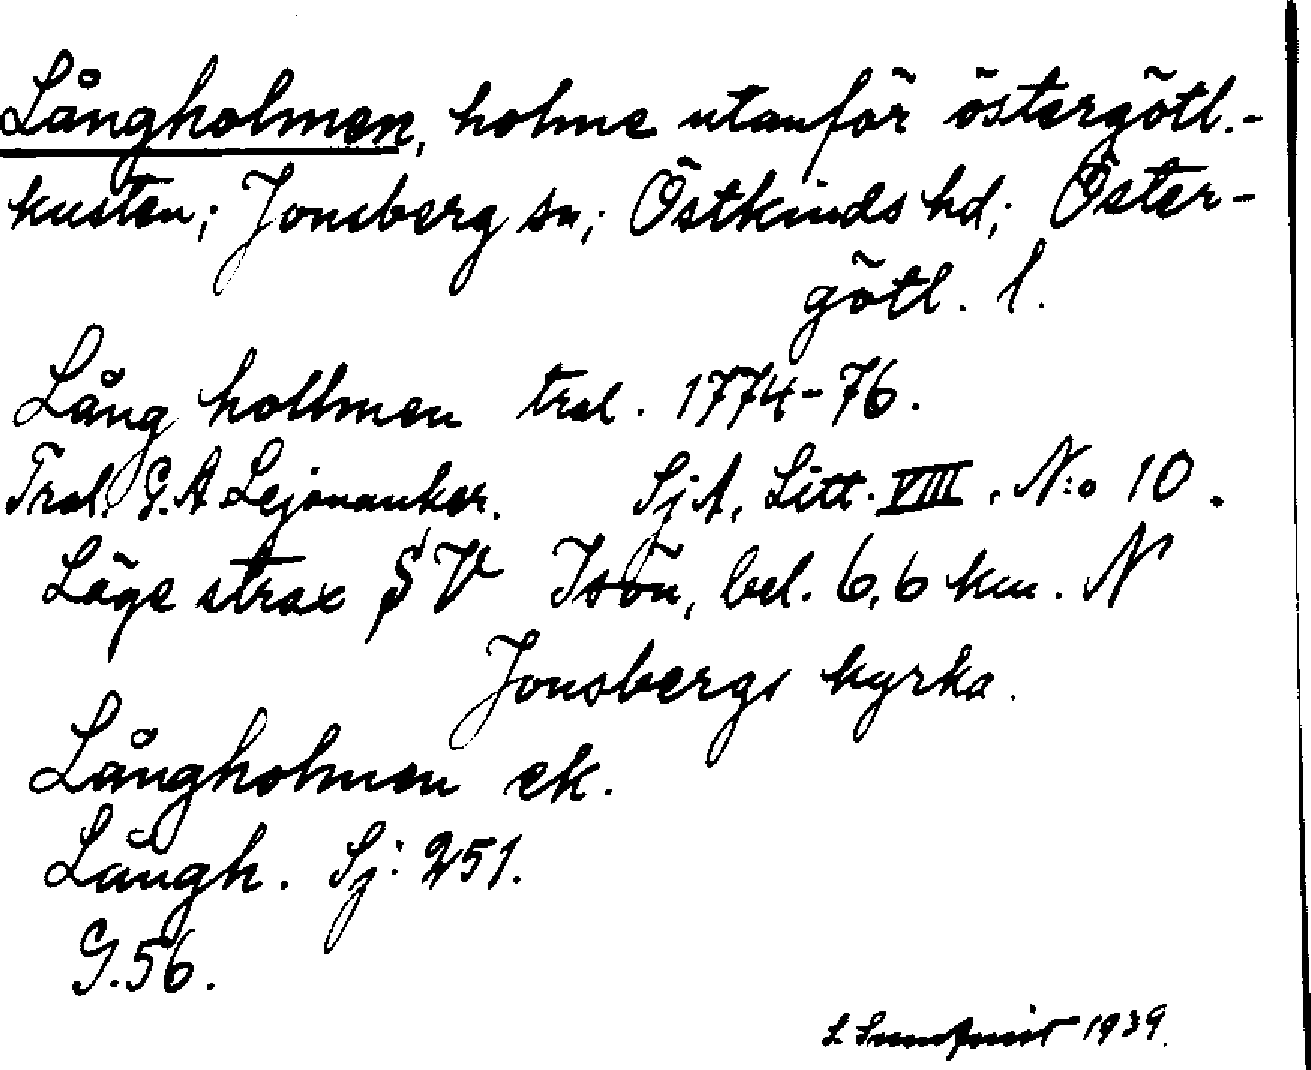 Långholmen, holme utanför östergötl.-
kusten; Jonsberg sn; Östkinds hd; Öster-
götl. l.
Lång hollmen trol. 1774-76.
Trol. G. A Lejonanker. SjA, Litt. VIII. N:o 10.
Läge strax S V Isön, bel. 6,6 km. N
Jonsbergs kyrka.
Långholmen ek.
Långh. Sj: 251.
G. 56.
L Sundquist 1939.